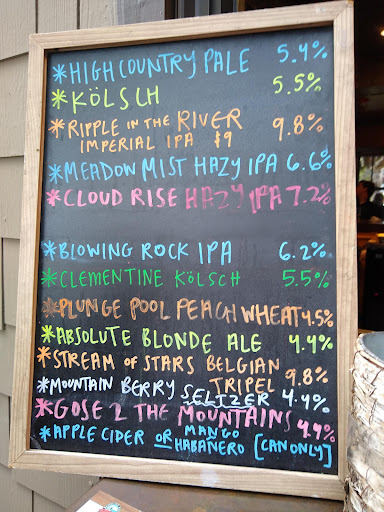 *HIGH COUNTRY PALE 5.4%
*KÖLSCH 5.5%
*RIPPLE IN THE RIVER
IMPERIAL IPA $9 9.8%
*MEADOW MIST HAZY IPA 6.6%
*CLOUD RISE HAZY IPA 7.2%
*BLOWING ROCK IPA 6.2%
*CLEMENTINE KÖLSCH 5.5%
*PLUNGE POOL PEACH WHEAT 4.5%
*ABSOLUTE BLONDE ALE 4.4%
*STREAM OF STARS BELGIAN
TRIPEL 9.8%
*MOUNTAIN BERRY SELTZER 4.4%
*GOSE 2 THE MOUNTAINS 4.4%
*APPLE CIDER OR MANGO
HABAÑERO [CAN ONLY]